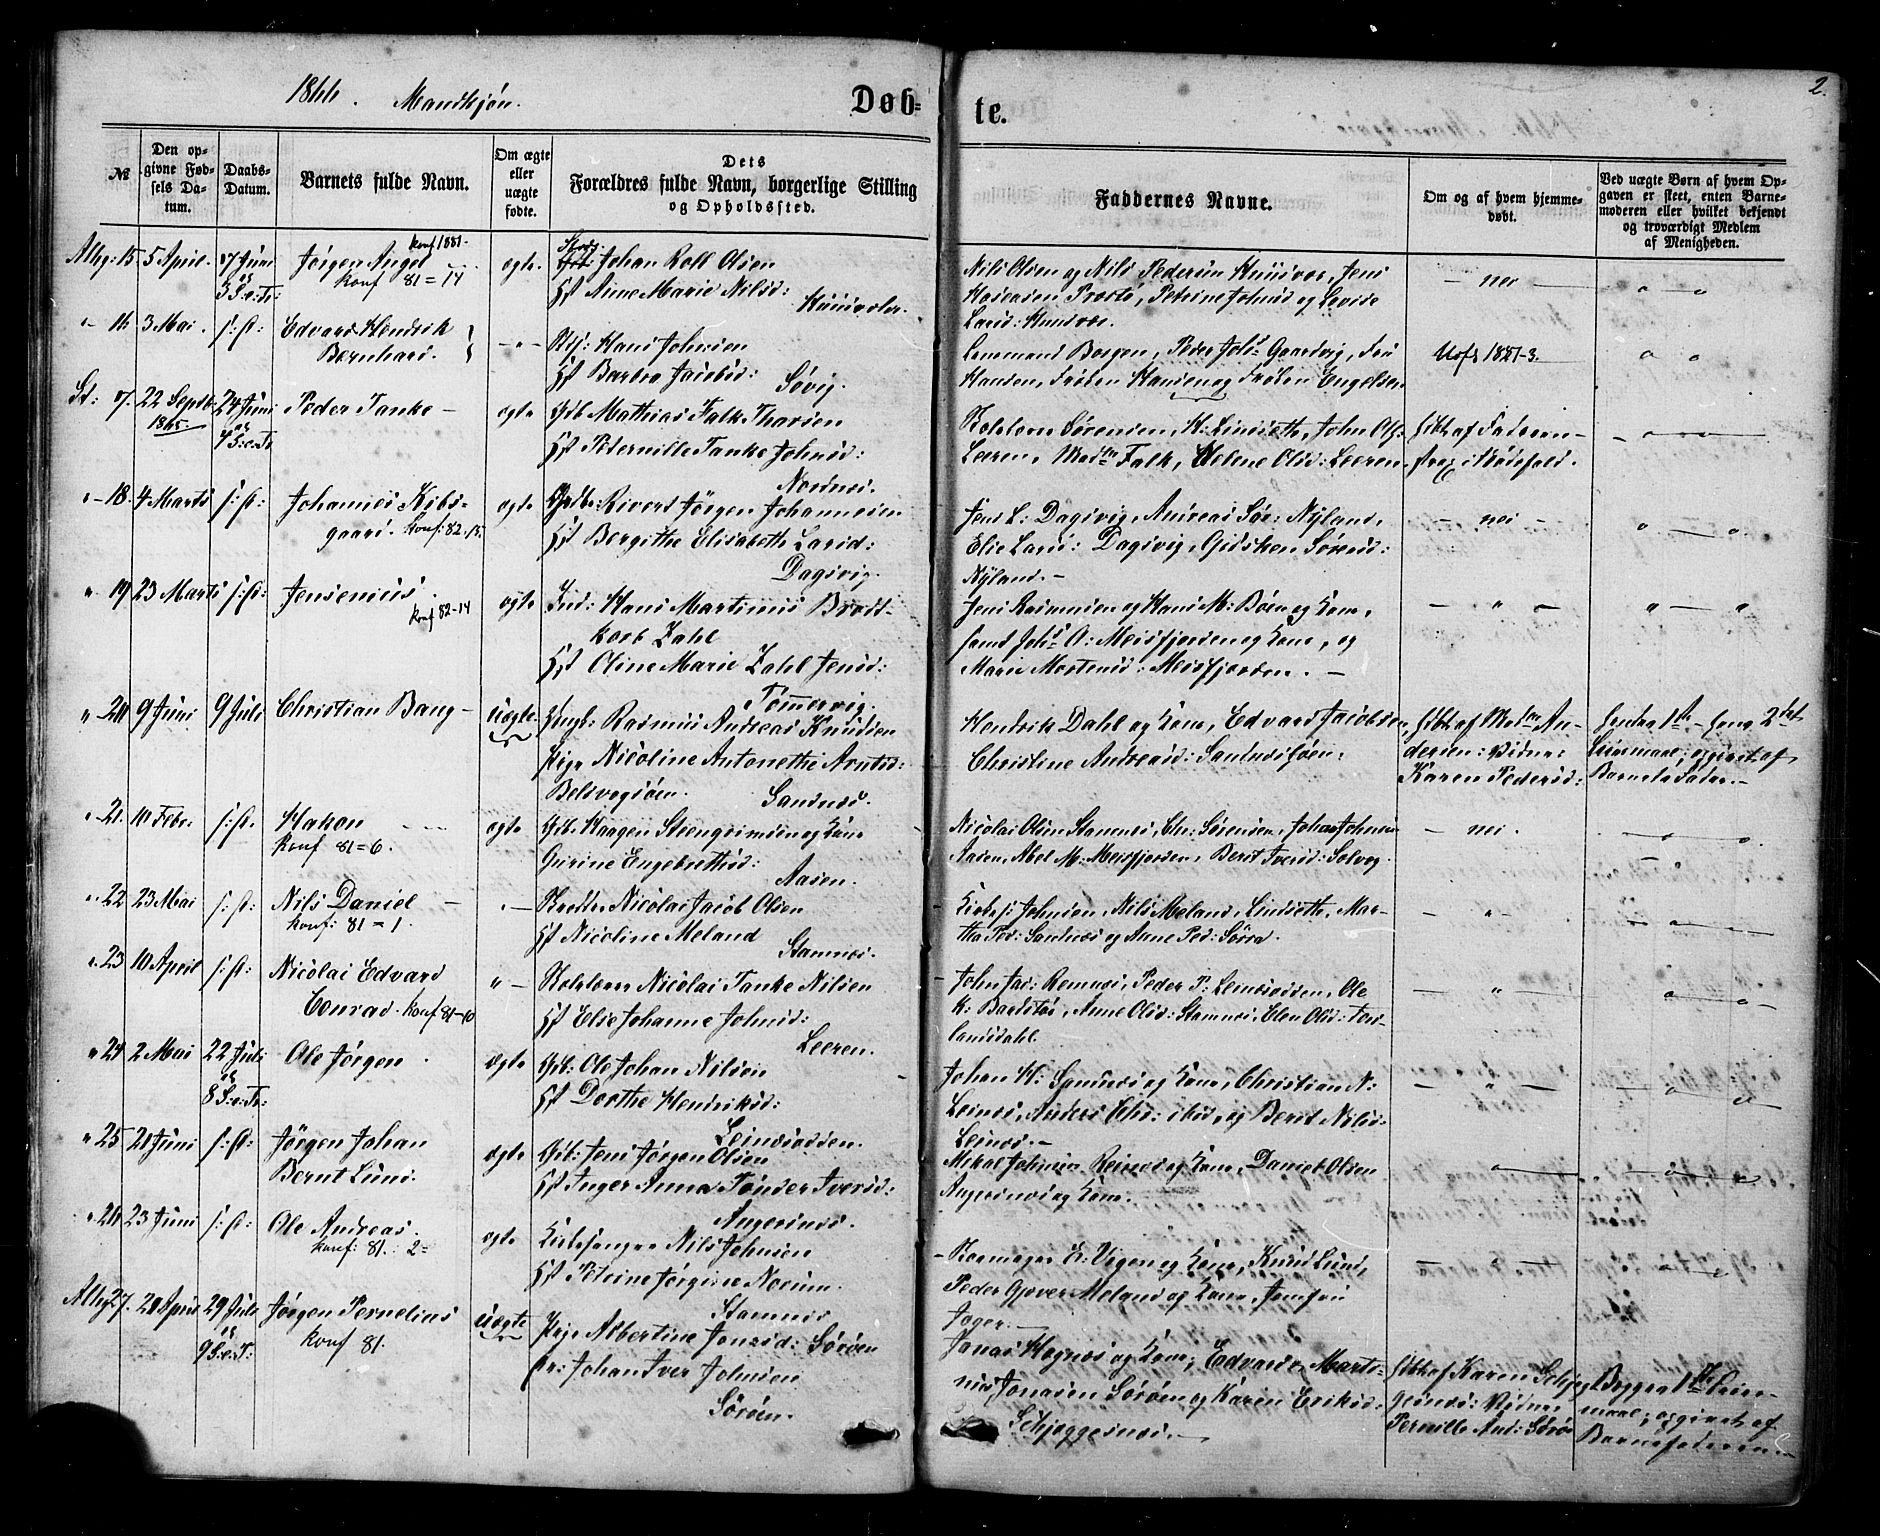 1866. Mandkjøn.
Døb-
te.
2.
№
Den op-
givne Fød-
sels Da-
tum.
Daabs-
Datum.
Barnets fulde Navn.
Om ægte
eller
uægte
fødte.
Dets
Forældres fulde Navn, borgerlige Stilling
og Opholdssted.
Faddernes Navne.
Om og af hvem hjemme-
døbt.
Ved uægte Børn af hvem Op-
gaven er skeet, enten Barne-
moderen eller hvilket bekjendt
og troværdigt Medlem
af Menigheden.
15. 5 April. 17 Juni
3 S. e. Tr:
Jørgen Angel konf 1881.
konf 81=14
ægte.
Johan Roll Olsen
Hst Anne Marie Nilsd:
Nils Olsen og Nils Pedersen Huusvær, Jens
Prestø, Petrine Johnsd og
Larsd: Huusvær.
- nei -
16. 3 Mai. s: d:
Edvard Hendrik
Bernhard.
Hans Johnsen
Hst Barbra Jacobsd:
Søvig.
Lensmand Borgen, Peder Johs: Gaardvig, Fru
Hansen, Frøken Hansen og Frøken Engelsen
Udf 1881-3.
St: 17. 22 Septb. 24 Juni
1865. 4 S. e. Tr
Peder Tanke -
ægte
Gb Mathias Falk Thorsen
Hst Pedernille Tanke Johnsd:
Nordnæs.
Sørensen, H: Lindseth, John Ols:
Leeren, Mad. Falk, Helene Olsd: Leeren.
18. 4 Marts s: d:
Johannes Kibs-
gaard. konf: 82-15.
ægte
Rivert Jørgen Johannesen
Hst Bergithe Elisabeth Larsd:
Dagsvig.
Jens L: Dagsvig, Andreas Sør: Nyland,
Elie Larsd: Dagsvig, Gidsken Sørensd:
Nyland. -
- nei -
19 23 Marts s: d:
Jensenius.
konf 82-14
ægte
Ind: Hans Martinus Brodt-
korb Zahl
Hst Oline Marie Zahl Jensd:
Tømmervig.
Jens Rasmussen og Hans M: Bøen og Kone,
samt Johs A: Meisfjorden og Kone, og
Maria Mortensd: Meisfjorden. -
20 9 Juni 9 Juli
Christian Bang -
uægte
Ungk: Rasmus Andreas Knudsen
Pige Nicoline Antonette Arntsd:
Belsvogsøen. Sandnæs.
Hendrik Dahl og Kone, Edvard Jacobsen,
Christine Andreasd: Sandnæssøen.
Hdbt af Mad An-
dersen: Vidne:
Karen Pedersd:
hendes 1ste - hans 2det
Leiermaal; opgivet af
Barnets Fader. -
21. 10 Febr. s: d.
Hakon
konf 81=6.
ægte
Gb: Haagen Steengrimsen og Kone
Gurine Engebrethsd:
Aasen.
Nicolai Olsen Stamnæs, Chr: Sørensen, Johan Johnsen
Aasen, Abel M: Meisfjorden, Berit Iversd: Solvog
- nei.
22 23 Mai s: d:
Nils Daniel -
konf: 81=1.
Nicolai Jacob Olsen
Hst Nicoline Meland
Stamnæs.
Kirkes: Johnsen, Nils Meland, Lindseth, Mar-
tha Ped: Sandnæs og Anne Ped: Sørra.
23 10 April s: d:
Nicolai Edvard
Conrad. konf 81-10
Nicolai Tanke Nilsen
Hst Elie Johanne Johnsd:
Leeren.
John Jac: Remnæs, Peder P: Leinesodden, Ole
K: Bardstø, Anne Olsd: Stamnæs, Elen Olsd: For-
landsdahl.
24 2 Mai 22 Juli
8 S: e: Tr:
Ole Jørgen.
ægte
Gb: Ole Johan Nilsen
Hst Dorthe Hendriksd:
Leinesodden.
Johan H: Sandnæs og Kone, Christian N:
Leinæs, Anders Chr: ibid, og Berit Nilsd:
Leinæs. -
25 20 Juni s: d:
Jørgen Johan
Bernt Lund.
ægte
Gb: Jens Jørgen Olsen
Hst Inger Anna Tønder Iversd:
Angersnæs.
Mikal Johnsen Reinæs og Kone, Daniel Olsen
Angersnæs og Kone.
26 23 Juni s: d:
Ole Andreas.
konf: 81. 2=
ægte
Kirkesanger Nils Johnsen
Hst Petrine Jørgine Norum.
Stamnæs
E: Vegen og Kone, Knud Lund,
Peder Gjøver Meland og Kone, Jomfru
Jager. -
27. 20 April 29 Juli
9 S: e: T:
Jørgen Pernelius
konf 81.
uægte
Pige Albertine Jonasd: Sørøen
Johan Iver Johnsen
Sørøen.
Jonas Hognæs og Kone, Edvard Marti-
nus Jonasen Sørøen og Karen Eriksd:
Skjeggesnæs. -
Hdbt af Karen Skjeg
gesnæs: Vidne:
Pernille And: Sørø
Begges 1ste Leier-
maal; opgivet af
Barnefaderen. -